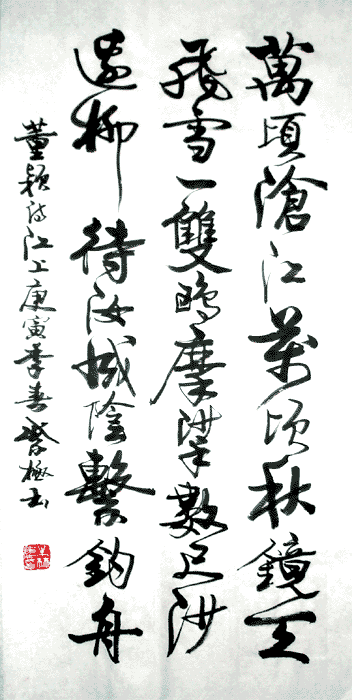 萬頃滄江萬頃秋鏡天
飛雪一雙鷗摩挲數尺沙
邊柳待汝成陰繫釣舟
董穎詩江上庚寅季春極書